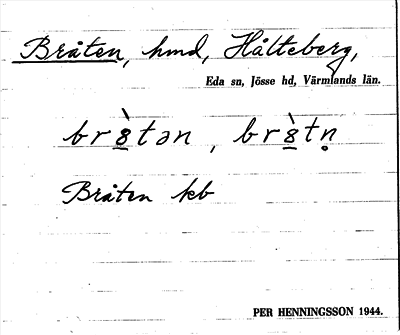 Bråten, hmd, Hålteberg,
Eda sn, Jösse hd, Värmlands län.
br8̲̀tən, br8̲̀tn̥
Bråten kb
PER HENNINGSSON 1944.